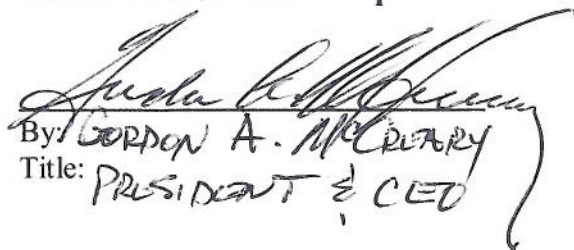 By: GORDON A. McCREARY
Title: PRESIDENT & CEO